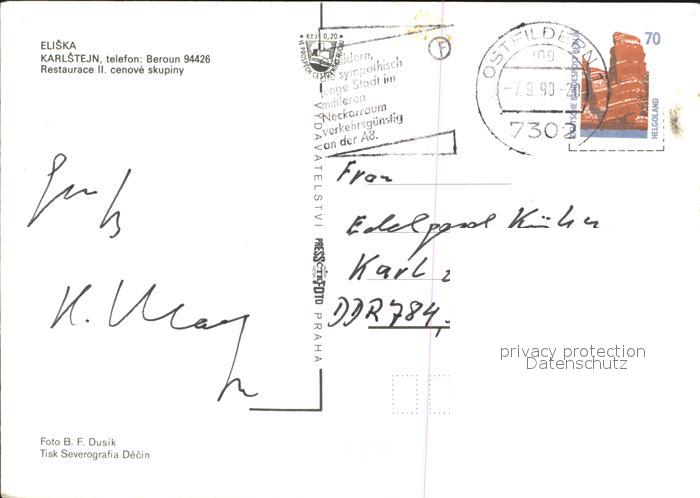 ELIŠKA
KARLŠTEJN, telefon: Beroun 94426
Restaurace II. cenové skupiny
Gruß
Foto B. F. Dusík
Tisk Severografia Děčín
VYDAVATELSTVÍ PRESSFOTO PRAHA
Kčs 0,20
sympathisch
junge Stadt im
mittleren
Neckarraum
verkehrsgünstig
an der A8.
F
OSTFILDERN
-7.9.90-
7302
70
DEUTSCHE BUNDESPOST BERLIN
HELGOLAND
Frau
Edelgard
Karl
DDR 784
privacy protection
Datenschutz